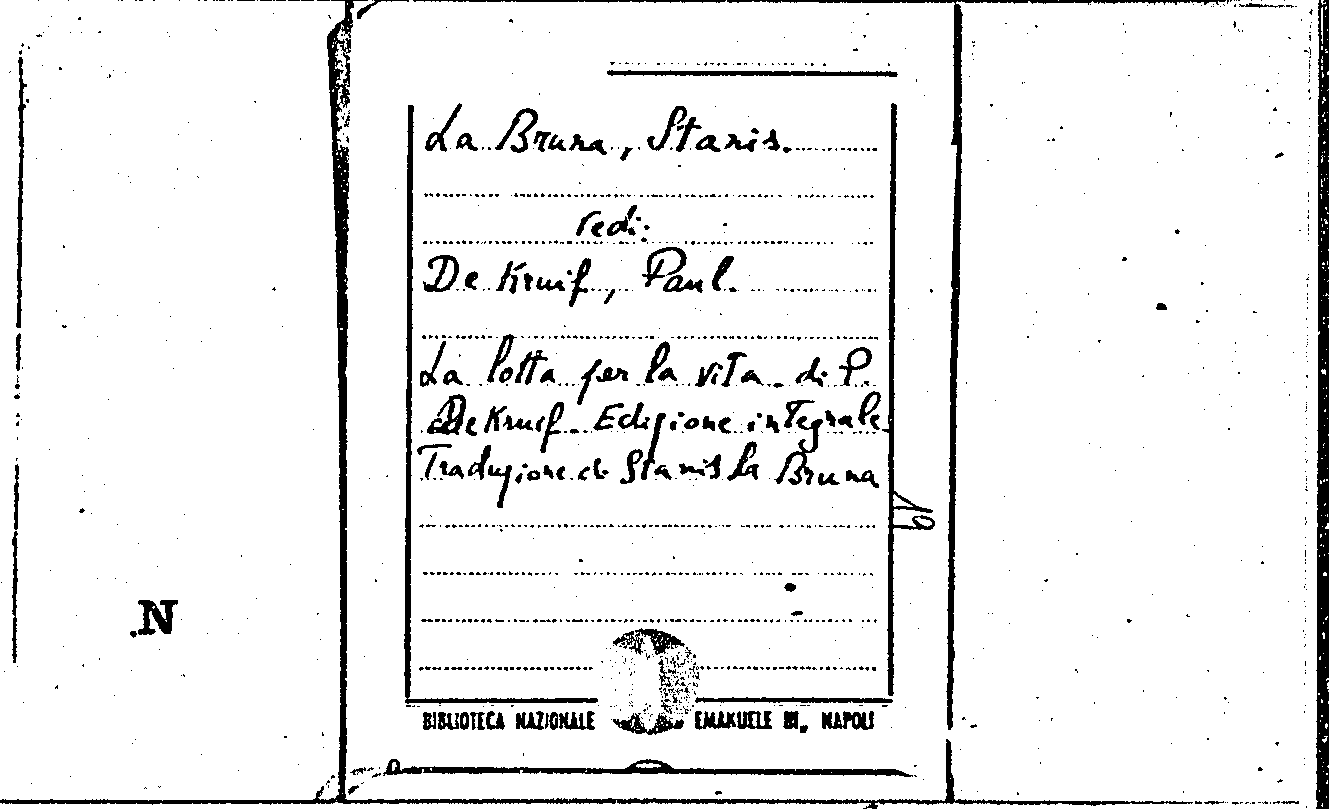 La Bruna, Stanis.
vedi:
De Kruif, Paul.
La lotta per la vita. di P.
De Kruif. Edizione integrale.
Traduzione di Stanis La Bruna
N
BIBLIOTECA NAZIONALE EMANUELE III, NAPOLI